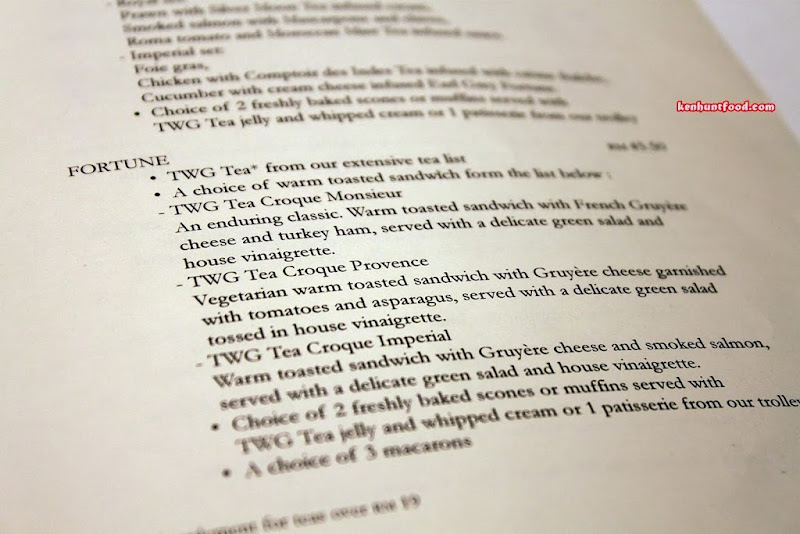 - Royal set:
Prawn with Silver Moon Tea infused
Smoked salmon with Mascarpone and
Roma tomato and Moroccan Mint Tea infused
- Imperial set:
Foie gras,
Chicken with Comptoir des Indes Tea infused with
Cucumber with cream cheese infused Earl Grey Fortune.
• Choice of 2 freshly baked scones or muffins served with
TWG Tea jelly and whipped cream or 1 patisserie from our trolley
kenhuntfood.com
FORTUNE
• TWG Tea* from our extensive tea list
• A choice of warm toasted sandwich form the list below :
- TWG Tea Croque Monsieur
An enduring classic. Warm toasted sandwich with French Gruyère
cheese and turkey ham, served with a delicate green salad and
house vinaigrette.
- TWG Tea Croque Provence
Vegetarian warm toasted sandwich with Gruyère cheese garnished
with tomatoes and asparagus, served with a delicate green salad
tossed in house vinaigrette.
- TWG Tea Croque Imperial
Warm toasted sandwich with Gruyère cheese and smoked salmon,
served with a delicate green salad and house vinaigrette.
• Choice of 2 freshly baked scones or muffins served with
TWG Tea jelly and whipped cream or 1 patisserie from our trolley
• A choice of 3 macarons
for teas over RM 19